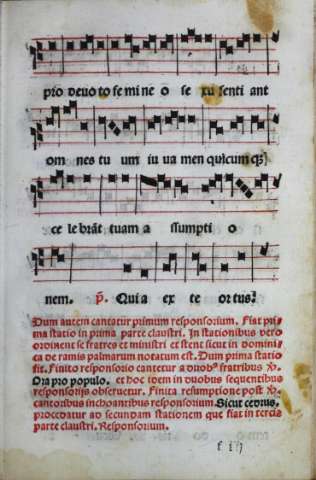 pro deuo to se mi ne o se xu senti ant
om nes tu um iu ua men quicum qȝ
ce le brāt tuam a ssumpti o
nem. p̄. Qui a ex te or tus?
Dum autem cantatur primum responsorium. Fiat pri
ma statio in prima parte claustri. In stationibus vero
ordinent se fratres et ministri et stent sicut in domini
ca de ramis palmarum notatum est. Dum prima statio
fit. Finito responsorio cantetur a duobꝰ fratribus ℣.
Ora pro populo. et hoc idem in duobus sequentibus
responsorijs obseruetur. Finita resumptione post ℣.
cantoribus inchoantibus responsorium Sicut cedrus.
procedatur ad secundam stationem que fiat in tercia
parte claustri. Responsorium.
f iij